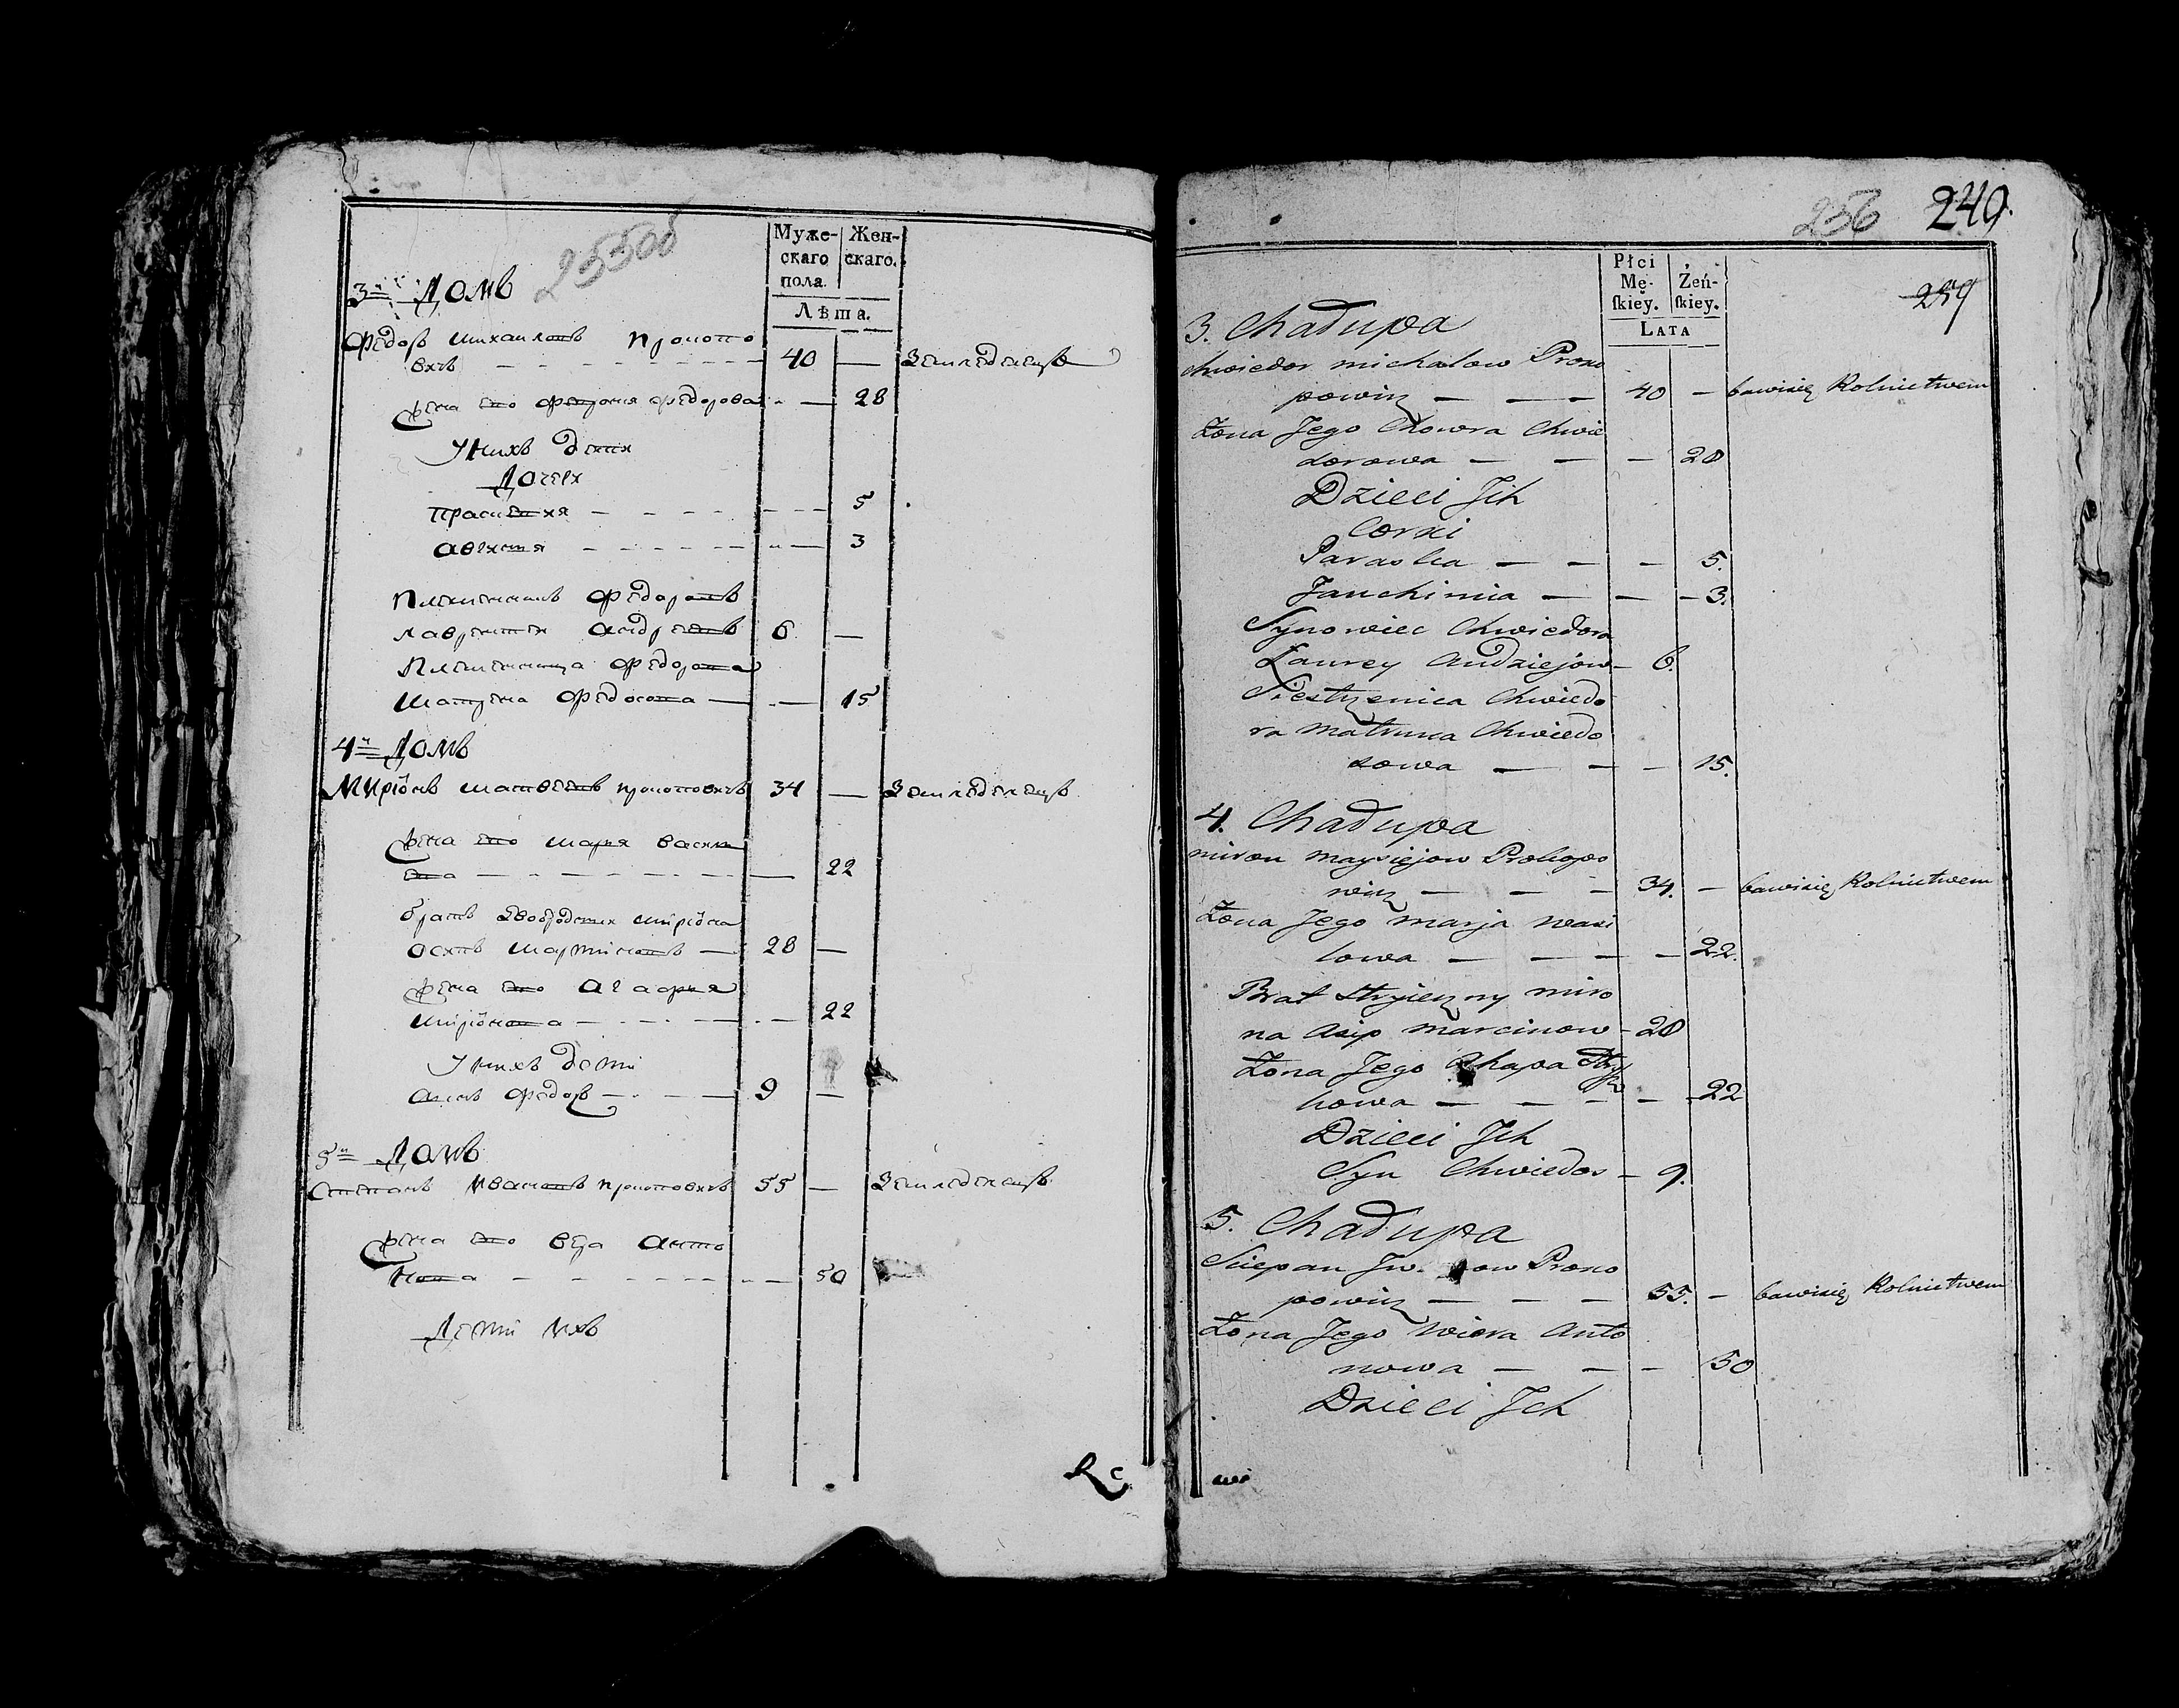 255об
Муже-
скаго
пола.
Жен-
скаго.
Лѣта.
3й Домъ
Федоръ Михаиловъ Прокопо
вичъ 40 — Земледелецъ
Жена его Федорова — 28
У нихъ дети
Дочери
Прасковия — 5
3
Племенникъ Федоровъ
Лаврентей Андреевъ 6 —
Племенница Федорова
Матрена Федосова — 15
4й Домъ
Миріонъ Матвеевъ Прокоповичъ 34 — Земледелецъ
Жена его Мария Васили
ева — 22
братъ двоюродный Миріона
Осипъ Мартиновъ — 28 —
Жена его Агафия
Миріонова — 22
У нихъ дети
Сынъ Федоръ — 9 —
5й Домъ
Степанъ Ивановъ Прокоповичъ 55 — Земледелецъ
Жена его Вера Анто
нова — 50
Дети ихъ
256 240.
259
Płci
Mę-
ſkiey.
Żeń-
ſkiey.
LATA
3. Chałupa
Chwiedor Michałow Proko
powicz — 40 — bawisię Rolnictwem
Żona Jego Chowra Chwie
dorowa — 28
Dzieci Ich
Corki
Paraska — 5.
Jauchimia — 3.
Synowiec Chwiedora
Ławrey Andziejow — 6.
Siestrzenica Chwiedo
ra Matruna Chwiedo
sowa — 15.
4. Chałupa
Miron Maysiejow Prokopo
wicz — 34. — bawisię Rolnictwem
Żona Jego Marja Wasi
lowa — 22.
Brat Stryieczny Miro
na Asip Marcinow — 28
Żona Jego Ahapa
howa — 22
Dzieci Ich
Syn Chwiedor — 9.
5. Chałupa
Sciepan Proko
powicz — 55. — bawisię Rolnictwem
Żona Jego Wiera Anto
nowa — 50
Dzieci Ich